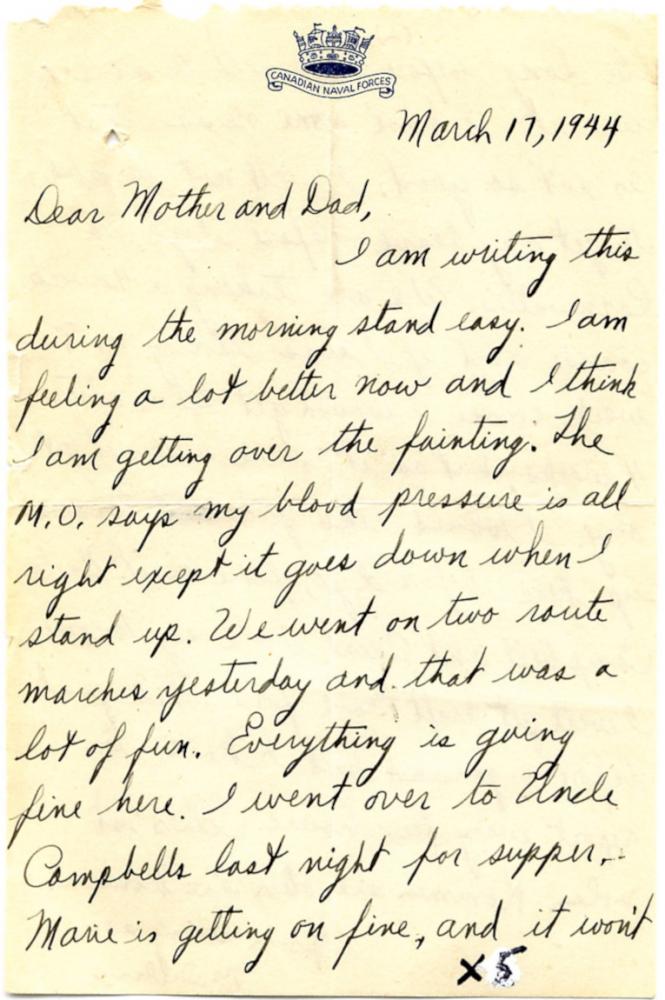 CANADIAN NAVAL FORCES
March 17, 1944
Dear Mother and Dad,
I am writing this
during the morning stand easy. I am
feeling a lot better now and I think
I am getting over the fainting. The
M.O. says my blood pressure is all
right except it goes down when I
stand up. We went on two route
marches yesterday and that was a
lot of fun. Everything is going
fine here. I went over to Uncle
Campbells last night for supper.
Marie is getting on fine, and it won't
x5